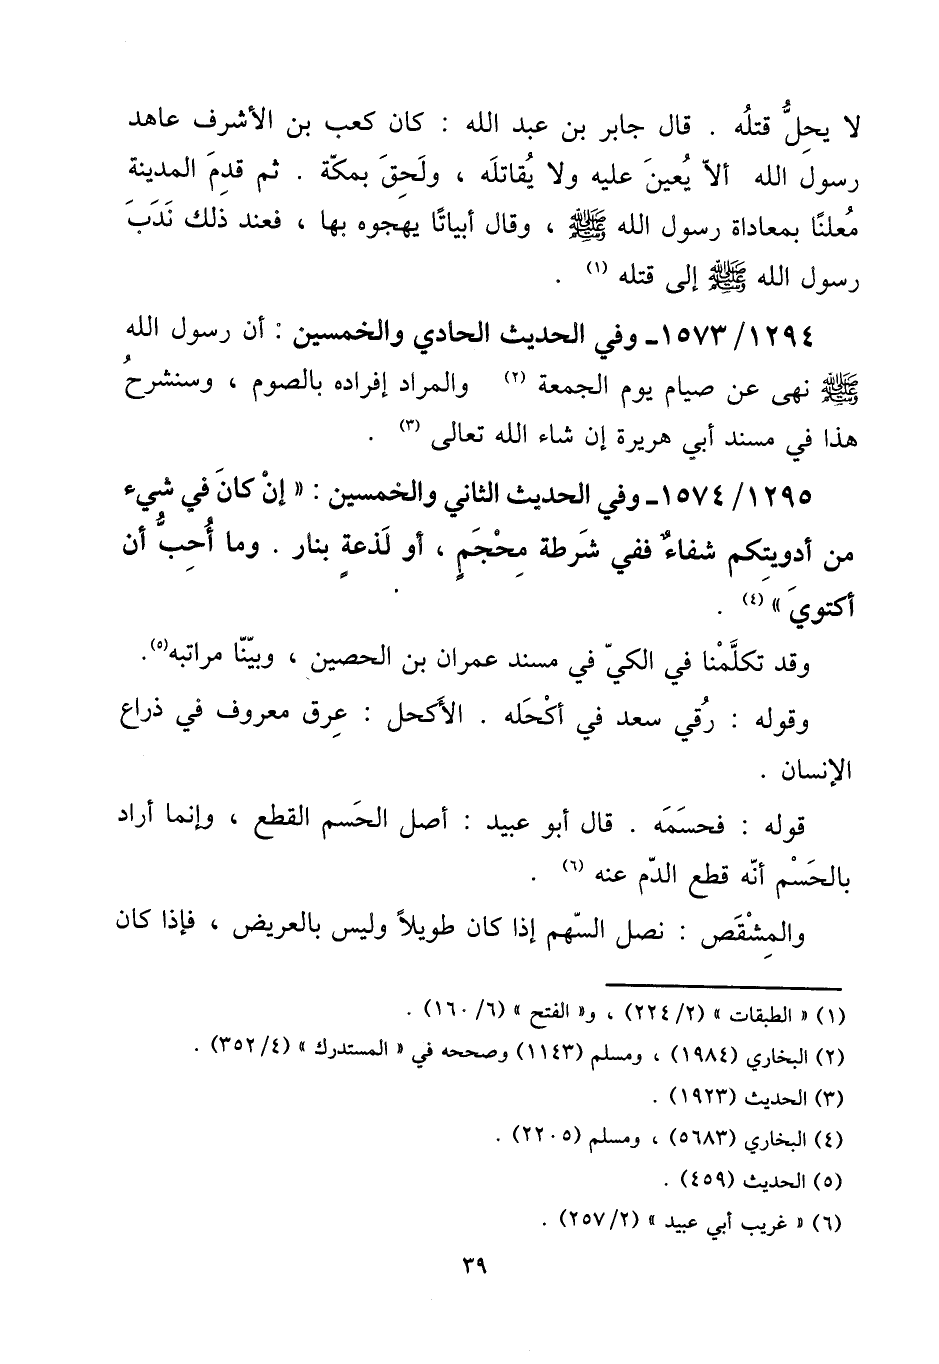 لا يحِلُّ قتلُه . قال جابر بن عبد الله : كان كعب بن الأشرف عاهد
رسول الله ألاّ يُعينَ عليه ولا يُقاتلَه ، ولَحِقَ بمكّة . ثم قدِمَ المدينة
مُعلنًا بمعاداة رسول الله ﷺ ، وقال أبياتًا يهجوه بها ، فعند ذلك نَدَبَ
رسول الله ﷺ إلى قتله (١) .
١٢٩٤/ ١٥٧٣ـ وفي الحديث الحادي والخمسين : أن رسول الله
ﷺ نهى عن صيام يوم الجمعة (٢) والمراد إفراده بالصوم ، وسنشرحُ
هذا في مسند أبي هريرة إن شاء الله تعالى (٣) .
١٢٩٥/ ١٥٧٤ـ وفي الحديث الثاني والخمسين : « إنْ كانَ في شيء
من أدويتِكم شفاءٌ ففي شَرطة مِحْجَمٍ ، أو لَذعةٍ بنار . وما أُحِبُّ أن
أكتويَ » (٤) .
وقد تكلَّمْنا في الكيّ في مسند عمران بن الحصين ، وبيّنّا مراتبه(٥).
وقوله : رُقي سعد في أكْحَله . الأَكحل : عِرق معروف في ذراع
الإنسان .
قوله : فحسَمَه . قال أبو عبيد : أصل الحَسم القطع ، وإنما أراد
بالحَسْم أنّه قطع الدّم عنه (٦) .
والمِشْقَص : نصل السّهم إذا كان طويلاً وليس بالعريض ، فإذا كان
(١) « الطبقات » (٢/ ٢٢٤) ، و« الفتح » (٦/ ١٦٠) .
(٢) البخاري (١٩٨٤) ، ومسلم (١١٤٣) وصححه في « المستدرك » (٤/ ٣٥٢) .
(٣) الحديث (١٩٢٣) .
(٤) البخاري (٥٦٨٣) ، ومسلم (٢٢٠٥) .
(٥) الحديث (٤٥٩) .
(٦) « غريب أبي عبيد » (٢/ ٢٥٧) .
٣٩